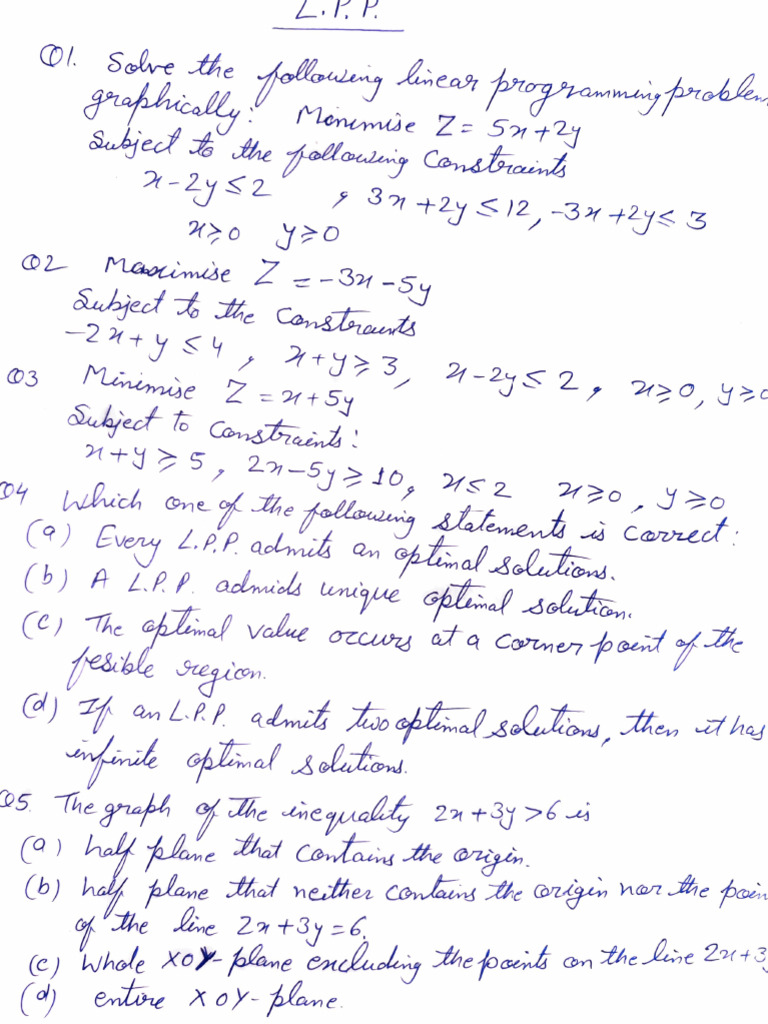 L.P.P.
Q1. Solve the following linear programming problem
graphically: Menimise Z = 5x+2y
Subject to the following Constraints
x-2y≤2 , 3x+2y≤12, -3x+2y≤3
x≥0 y≥0
Q2 Maximise Z = -3x-5y
Subject to the constraints
-2x+y≤4, x+y≥3, x-2y≤2, x≥0, y≥0
Q3 Minimise Z = x+5y
Subject to constraints:
x+y≥5, 2x-5y≥10, x≤2 x≥0, y≥0
Q4 Which one of the following statements is correct:
(a) Every L.P.P. admits an optimal solutions.
(b) A L.P.P. admids unique optimal solution.
(c) The optimal value occurs at a corner point of the
fesible region.
(d) If an L.P.P. admits two optimal solutions, then it has
infinite optimal solutions.
Q5. The graph of the inequality 2x+3y>6 is
(a) half plane that contains the origin.
(b) half plane that neither contains the origin nor the poin
of the line 2x+3y=6.
(c) Whole XOY-plane excluding the points on the line 2x+3y
(d) entire XOY-plane.